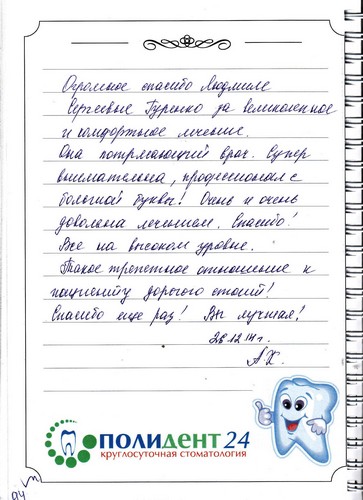 Огромное спасибо Людмиле
Сергеевне Гуренко за великолепное
и комфортное лечение.
Она потрясающий врач. Супер
внимательна, профессионал с
большой буквы! Очень и очень
довольна лечением. Спасибо!
Все на высоком уровне.
Такое трепетное отношение к
пациенту дорогого стоит!
Спасибо еще раз! Вы лучшая!
28.12.14г.
А.Х.
ПОЛИДЕНТ 24
круглосуточная стоматология